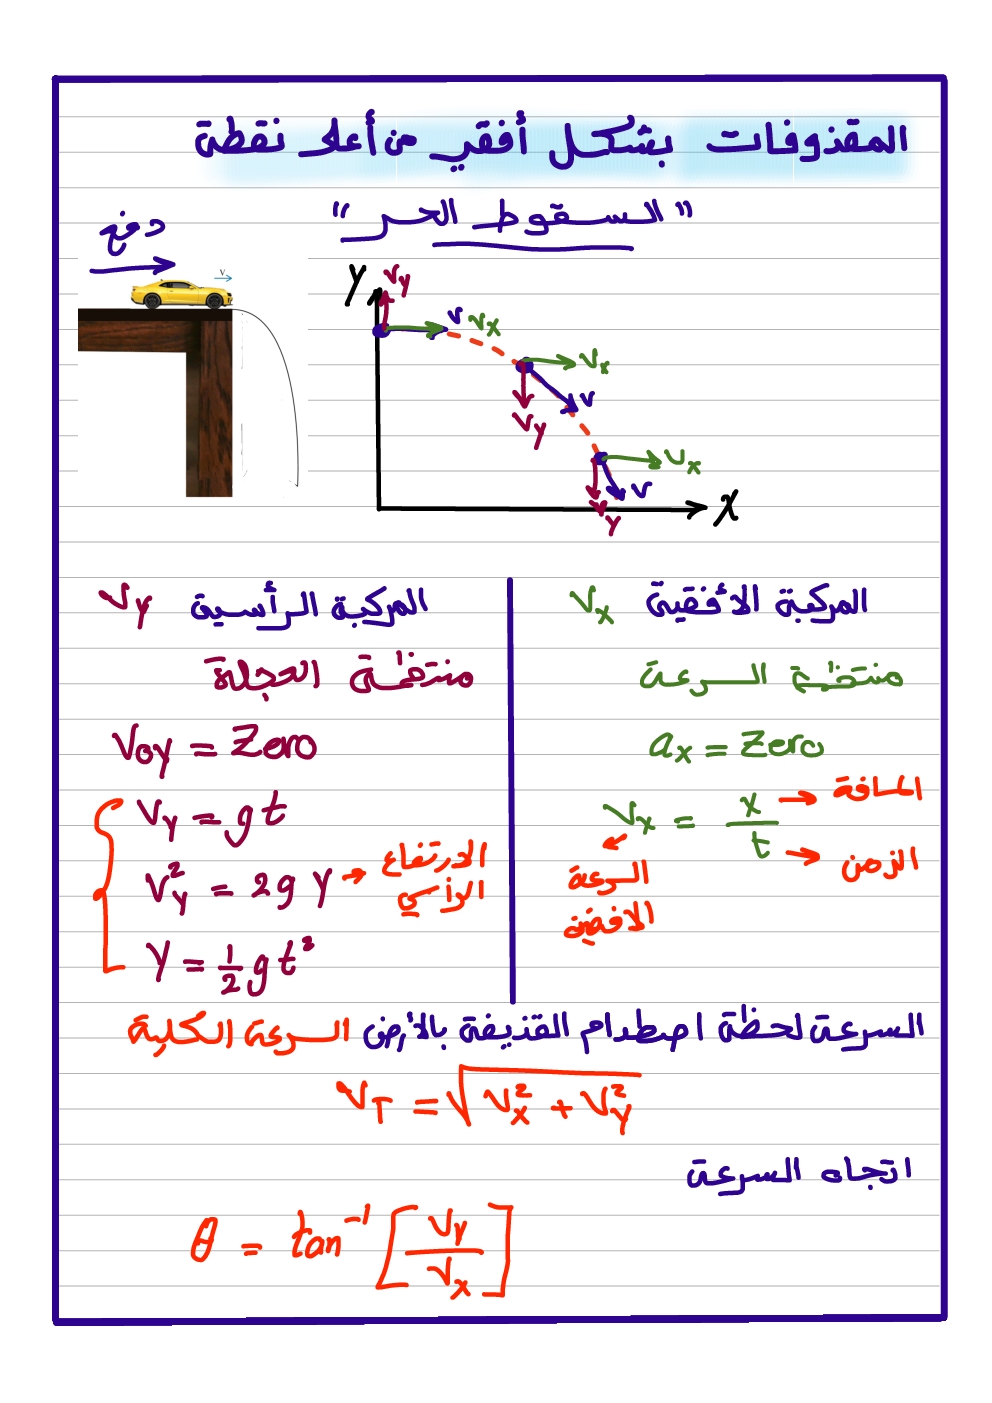 المقذوفات بشكل أفقي من أعلى نقطة
"السقوط الحر"
دفع
v
y
vy
v vx
vx
v
vy
vx
v
vy
x
المركبة الأفقية Vx
منتظمة السرعة
ax = Zero
Vx = x / t
المسافة
الزمن
السرعة الافقية
المركبة الرأسية Vy
منتظمة العجلة
Voy = Zero
Vy = gt
Vy² = 2g y
الارتفاع الرأسي
y = 1/2 g t²
السرعة لحظة اصطدام القذيفة بالأرض السرعة الكلية
VT = √Vx² + Vy²
اتجاه السرعة
θ = tan⁻¹ [Vy / Vx]